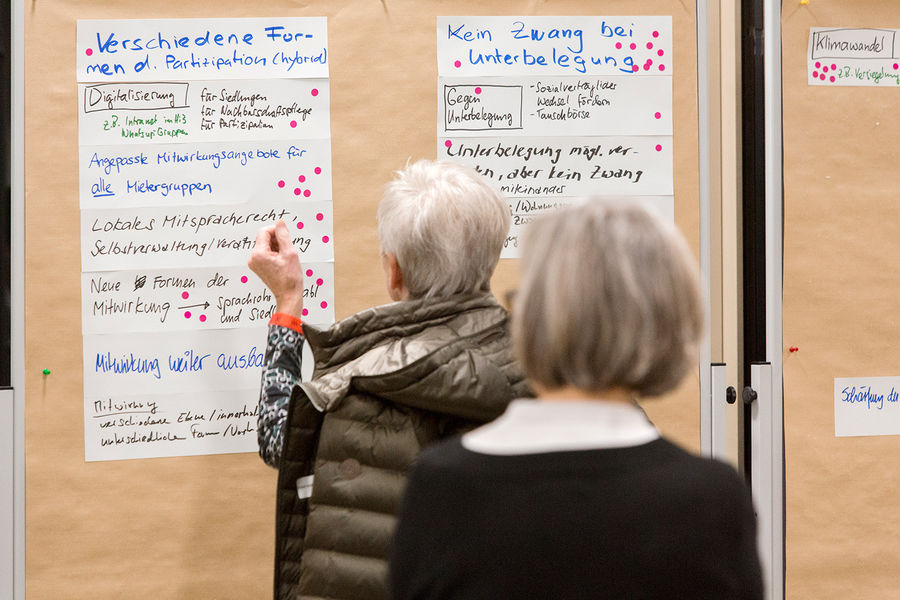 Verschiedene For-
men d. Partizipation (hybrid)
Digitalisierung
z.B. Intranet im H:3
WhatsupGruppen
für Siedlungen
für Nachbarschaftspflege
für Partizipation
Angepasste Mitwirkungsangebote für
alle Mietergruppen
Lokales Mitspracherecht,
Selbstverwaltung/
Neue Formen der
Mitwirkung → Sprachrohr
und Siedl
Mitwirkung weiter ausba
Mitwirkung
verschiedene Ebene / innerhalb
unterschiedliche Formen /
Kein Zwang bei
Unterbelegung
Gegen
Unterbelegung
- Sozialverträglicher
Wechsel fördern
- Tauschbörse
Unterbelegung mögl. ver-
en, aber kein Zwang
miteinander
Klimawandel
z.B. Versiegelung
Schärfung der